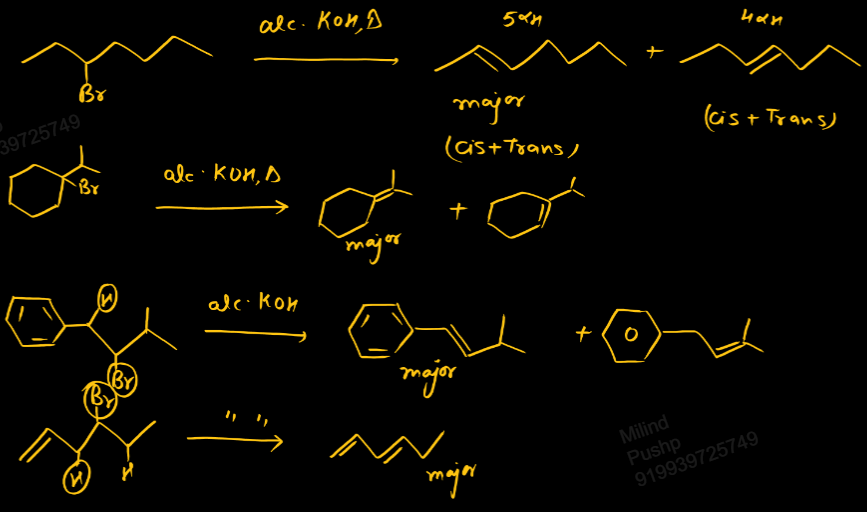 alc. KOH, Δ 5αH + 4αH
Br
major
(cis + Trans)
(cis + Trans)
39725749
Br
alc. KOH, Δ
+
major
H
Br
alc. KOH
+
major
Br
H
H
" "
major
Milind
Pushp
919939725749